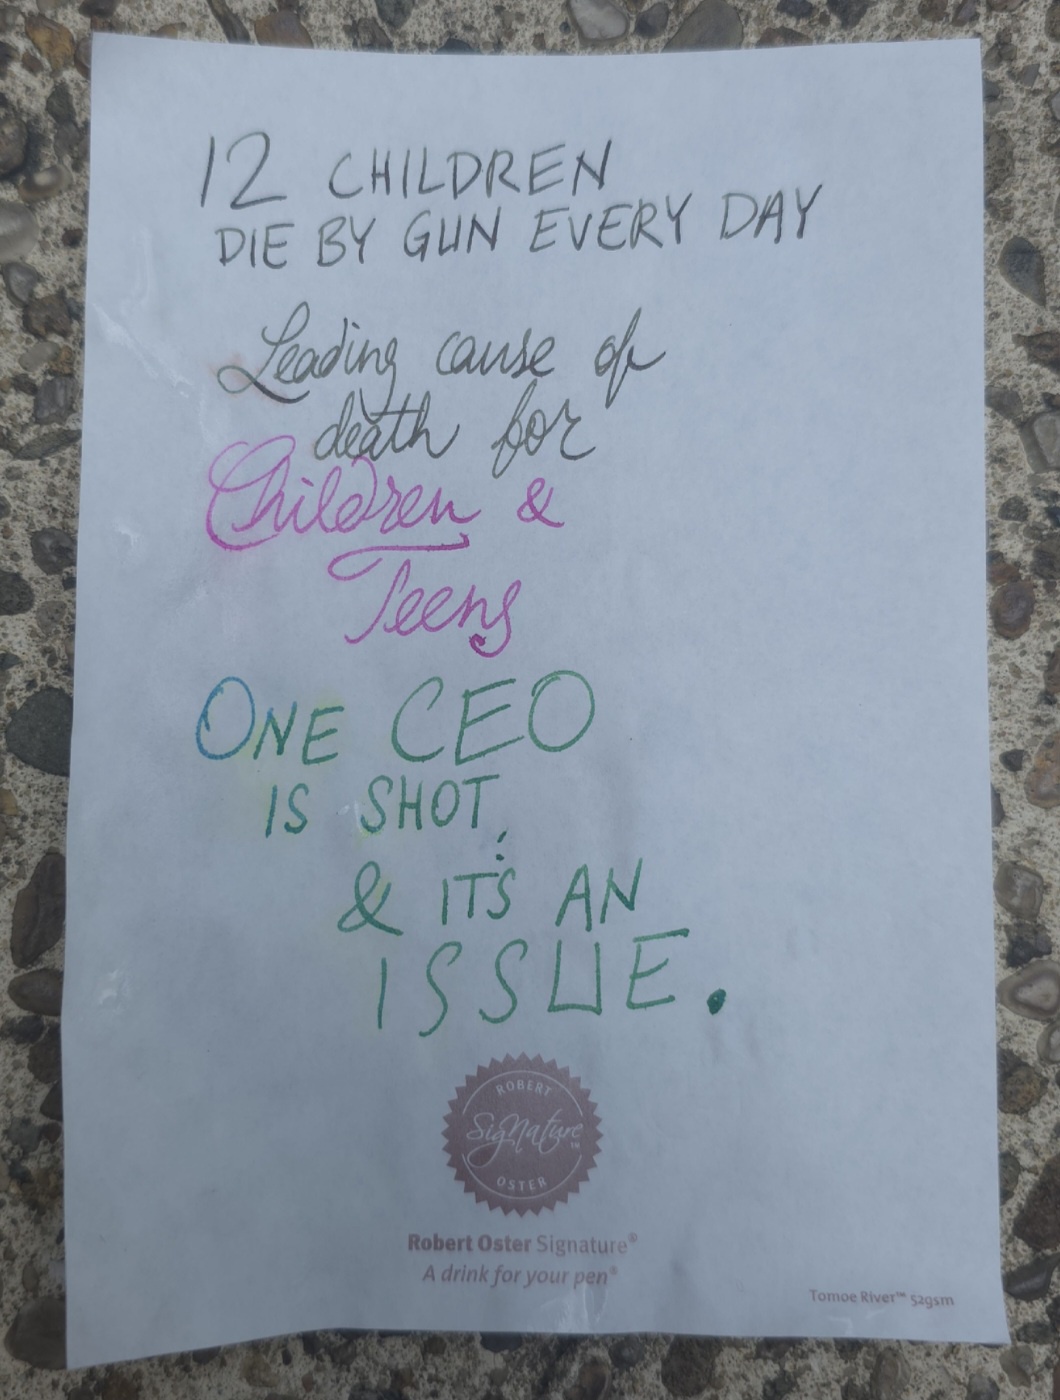 12 CHILDREN
DIE BY GUN EVERY DAY
Leading cause of
death for
Children &
Teens
ONE CEO
IS SHOT,
& IT'S AN
ISSUE.
ROBERT
Signature™
OSTER
Robert Oster Signature®
A drink for your pen®
Tomoe River™ 52gsm